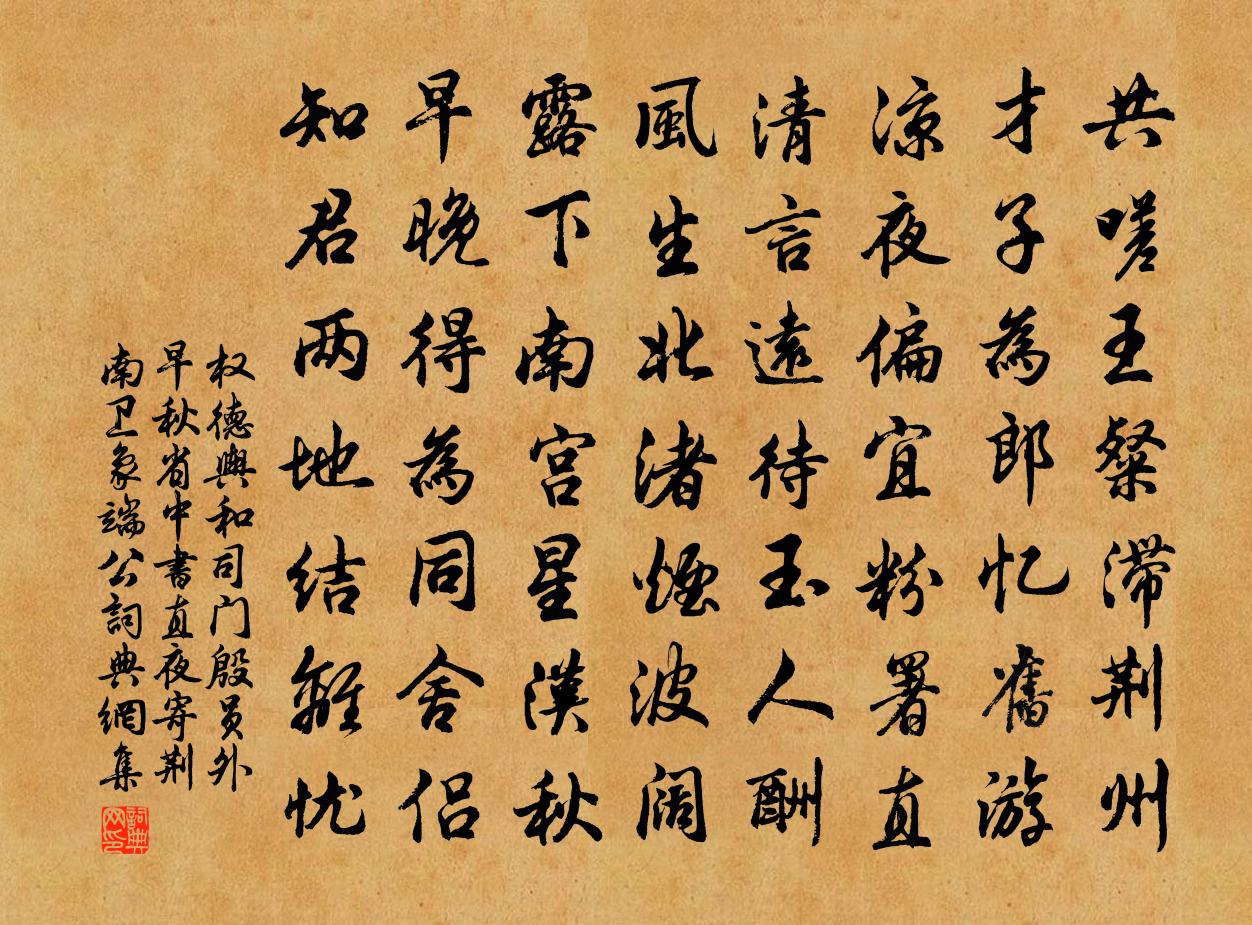 共嗟王粲滞荆州
才子為郎忆舊游
凉夜偏宜粉署直
清言遠待玉人酬
風生北渚煙波阔
露下南宫星漢秋
早晚得為同舍侣
知君两地结離忧
权德輿和司门殷员外
早秋省中書直夜寄荆
南卫象端公詞典網集
詞典网印